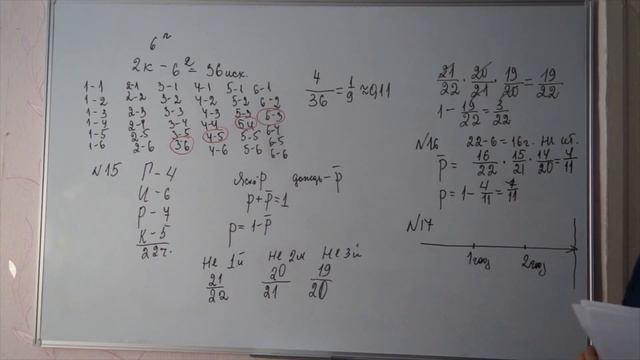 6ⁿ
2к – 6² = 36 исх.
1-1 2-1 3-1 4-1 5-1 6-1
1-2 2-2 3-2 4-2 5-2 6-2
1-3 2-3 3-3 4-3 5-3 6-3
1-4 2-4 3-4 4-4 5-4 6-4
1-5 2-5 3-5 4-5 5-5 6-5
1-6 2-6 3-6 4-6 5-6 6-6
4/36 = 1/9 ≈ 0,11
N15
П – 4
И – 6
Р – 7
К – 5
22 ч.
Ясно – p дождь – p̄
p + p̄ = 1
p = 1 - p̄
Не 1й Не 2й Не 3й
21/22 20/21 19/20
21/22 · 20/21 · 19/20 = 19/22
1 - 19/22 = 3/22
N16 22-6=16 г. Не ит.
p̄ = 16/22 · 15/21 · 14/20 = 4/11
p = 1 - 4/11 = 7/11
N17
1 год 2 год